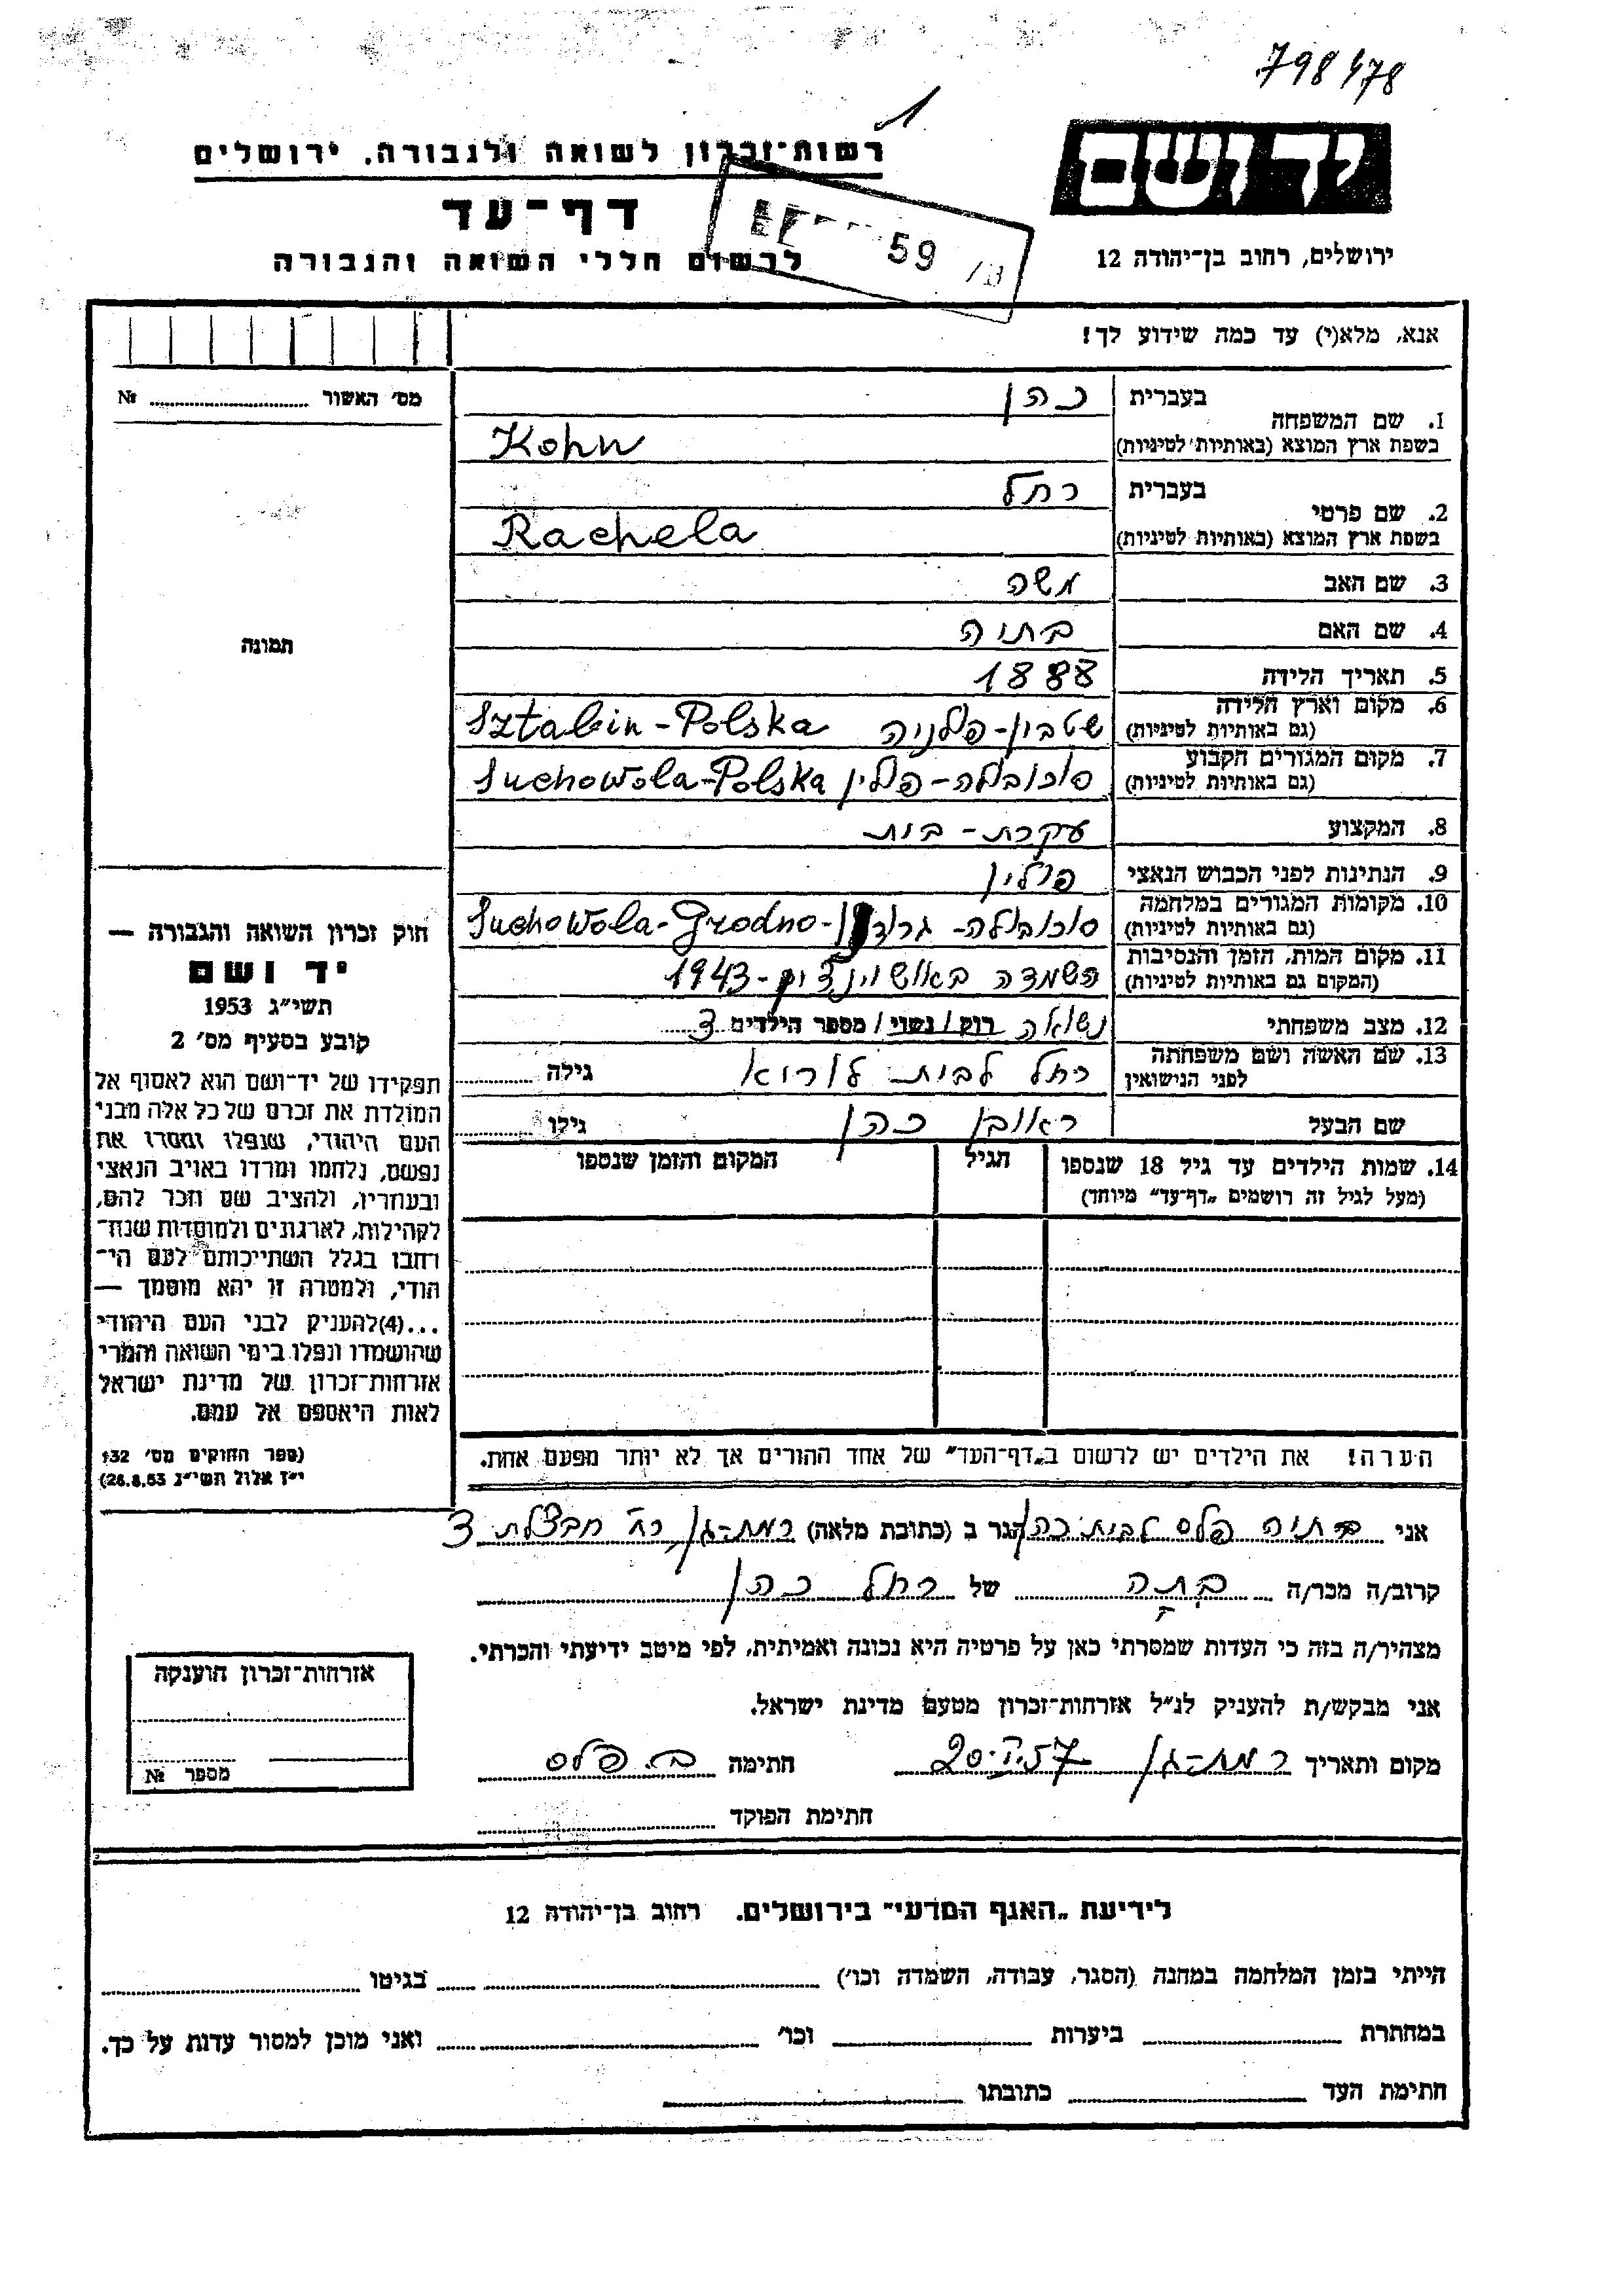 798478
1
רשות-זכרון לשואה ולגבורה, ירושלים
יד ושם
דף-עד
לרשום חללי השואה והגבורה
59
ירושלים, רחוב בן-יהודה 12
אנא, מלא(י) עד כמה שידוע לך!
מס׳ האשור № 
תמונה
1. שם המשפחה
בעברית כהן
בשפת ארץ המוצא (באותיות לטיניות) Kohn
2. שם פרטי
בעברית רחל
בשפת ארץ המוצא (באותיות לטיניות) Rachela
3. שם האב משה
4. שם האם בתיה
5. תאריך הלידה 1888
6. מקום וארץ הלידה
(גם באותיות לטיניות) שטבין-פולניה Sztabin-Polska
7. מקום המגורים הקבוע
(גם באותיות לטיניות) סוכובולה-פולין Suchowola-Polska
8. המקצוע עקרת-בית
9. הנתינות לפני הכבוש הנאצי פולין
10. מקומות המגורים במלחמה
(גם באותיות לטיניות) סוכובולה-גרודנו Suchowola-Grodno-
11. מקום המות, הזמן והנסיבות
(המקום גם באותיות לטיניות) השמדה באושוינצים-1943
12. מצב משפחתי נשואה רוק / נשוי / מספר הילדים 3
13. שם האשה ושם משפחתה
לפני הנישואין רחל לבית לוריא גילה
שם הבעל ראובן כהן גילו
14. שמות הילדים עד גיל 18 שנספו הגיל המקום והזמן שנספו
(מעל לגיל זה רושמים „דף-עד״ מיוחד)
הערה! את הילדים יש לרשום ב„דף-העד״ של אחד ההורים אך לא יותר מפעם אחת.
חוק זכרון השואה והגבורה —
יד ושם
תשי״ג 1953
קובע בסעיף מס׳ 2
תפקידו של יד-ושם הוא לאסוף אל
המולדת את זכרם של כל אלה מבני
העם היהודי, שנפלו ומסרו את
נפשם, נלחמו ומרדו באויב הנאצי
ובעוזריו, ולהציב שם וזכר להם,
לקהילות, לארגונים ולמוסדות שנח־
רבו בגלל השתייכותם לעם הי־
הודי, ולמטרה זו יהא מוסמך —
...(4) להעניק לבני העם היהודי
שהושמדו ונפלו בימי השואה והמרי
אזרחות-זכרון של מדינת ישראל
לאות היאספם אל עמם.
(ספר החוקים מס׳ 132
י״ז אלול תשי״ג 26.8.53)
אני בתיה פלס לבית כהן הגר ב (כתובת מלאה) רמת-גן רח׳ חבצלת 3
קרוב/ה מכר/ה בתה של רחל כהן
מצהיר/ה בזה כי העדות שמסרתי כאן על פרטיה היא נכונה ואמיתית, לפי מיטב ידיעתי והכרתי.
אני מבקש/ת להעניק לנ״ל אזרחות-זכרון מטעם מדינת ישראל.
מקום ותאריך רמת-גן 20.I.57 חתימה ב. פלס
חתימת הפוקד
אזרחות-זכרון הוענקה
מספר №
לידיעת „האגף המדעי״ בירושלים. רחוב בן-יהודה 12
הייתי בזמן המלחמה במחנה (הסגר, עבודה, השמדה וכו׳) בגיטו
במחתרת ביערות וכו׳ ואני מוכן למסור עדות על כך.
חתימת העד כתובתו